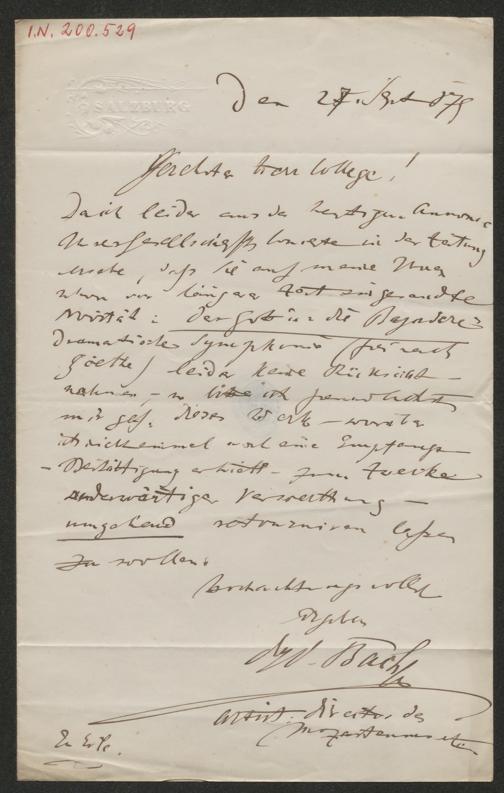 I.N. 200.529
SALZBURG
Den 27. Sept 1875
Geehrter Herr College!
Da ich leider aus der heutigen Annonce
Ihrer Gesellschaftsconcerte in der Zeitung
ersehe, daß Sie auf meine Ihnen
schon vor längerer Zeit eingesandte
Novität: "Der Gott u. die Bajadere"
Dramatische Symphonie (frei nach
Göthe) leider keine Rücksicht
nehmen, so bitte ich freundlichst
mir gef. dieses Werk – worüber
ich nicht einmal noch eine Empfangs-
-Bestättigung erhielt – zum Zwecke
anderwärtiger Verwerthung –
umgehend retourniren laßen
zu wollen.
Hochachtungsvollst
Ergeben
Otto Bach
artist. Director des
Mozarteums etc.